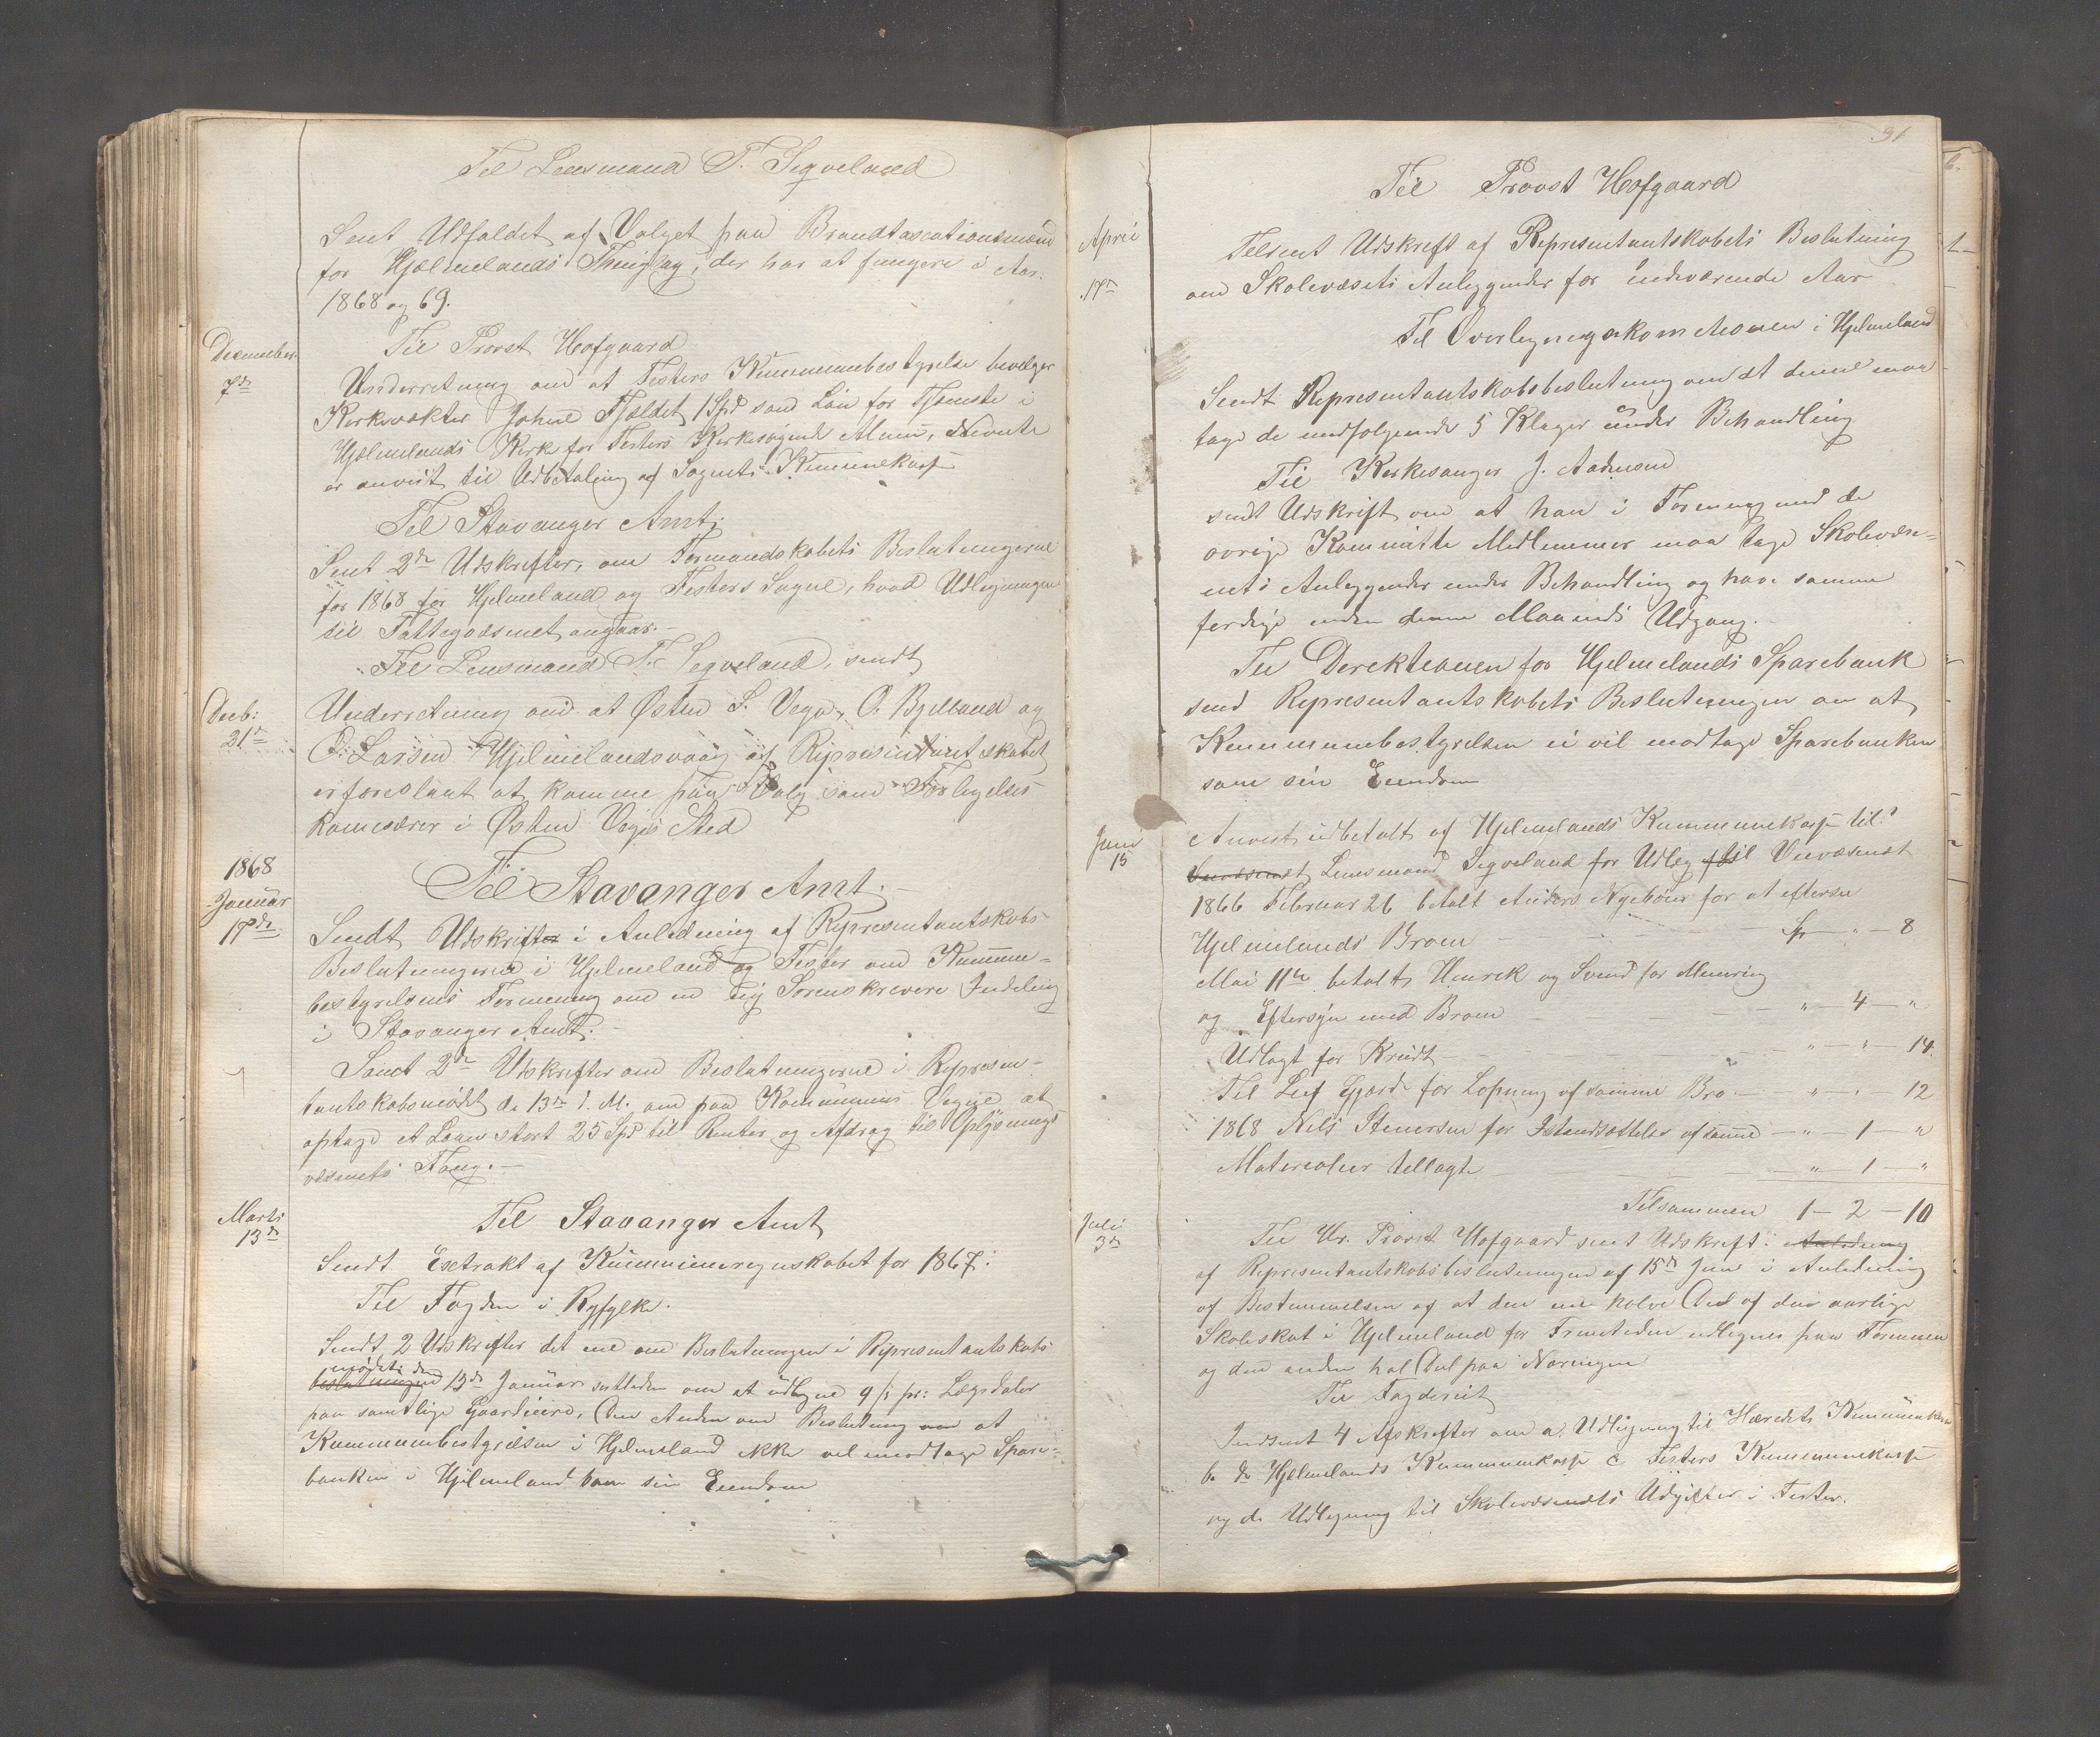 Til Lensmand T. Segveland
Sent Udfaldet af Valget paa Brandtaxationsmænd
for Hjælmelands Thinglag, der har at fungere i Aar:
1868 og 69.
Til Provst Hofgaard
December
7de
Underretning om at Fisters Kummunebestyrelse bevilger
Kirkevækter Johne Fjældet, 1 Spd som Løn for Tjæneste i
Hjælmelands Kirk for Fisters Kirkesøgende Almu, Nevnte
er anvist til Udbetaling af Sognets Kummunekasse
Til Stavanger Amt.
Sent 2de Udskrifter, om Formandskabets Beslutningerne
for 1868 for Hjelmeland og Fisters Sogne, hvad Udligningen
til Fattigvæsenet angaar.-
Til Lensmand T. Segveland, sendt
Decb:
21de
Underretning om at Østen S. Vega, O. Bjelland og
O. Larsen Hjelmelandsvaag af Repræsentantskabet
er foreslaaet at komme paa Valg som Forligelses
komesærer i Østen Vegas Sted
1868
Januar
17de
Til Stavanger Amt.-
Sendt Udskrifter i Anledning af Representantskabs
Beslutningerne i Hjelmeland og Fister om Kummune-
bestyrelsens Formening om en ny Sorenskrevere Indeling
i Stavanger Amt.-
Sent 2de Udskrifter om Beslutningerne i Represen-
tantskabsmødet de 13de d. M. om paa Kommunens Vegne at
optage et Laan stort 25 Spd til Renter og Afdrag til Oplysnings
væsenets Fong.-
Marts
13de
Til Stavanger Amt
Sendt Exstrakt af Kummuneregnskabet for 1867.
Til Fogden i Ryfylke.
Sendt 2 Udskrifter det ene om Beslutningen i Representantskabs
mødet den
beslutningen 13de Januar sistleden om at udligne 9 s pr: Lægsdaler
paa samtlige Gaardeiere, Den Anden om Beslutning om at
Kummunebestyrelsen i Hjelmeland ikke vil modtage Spare-
banken i Hjelmeland som sin Eiendom
91
Til Provst Hofgaard
April
17de
Tilsent Udskrift af Representantskabets Beslutning
om Skolevæsets Anleggender for indeværende Aar
Til Overligningskomitionen i Hjelmeland
Sendt Representantskabsbeslutning om at denne maa
tage de medfølgende 5 Klager under Behandling
Til Kirkesanger J. Aadnesen
sendt Udskrift om at han i Forening med de
øvrige Kommitte Medlemmer maa tage Skolevæse-
nets Anleggender under Behandling og have samme
ferdige inden denne Maaneds Udgang.-
Til Derektionen for Hjelmelands Sparebank
send Representantskabets Beslutningen om at
Kummunebestyrelsen ei vil modtage Sparebanken
som sin Eiendom
Juni
15
Anvist udbetalt af Hjelmelands Kummunekasse til:
Lensmand Segveland for Udleg til Veivæsenet
1866 Februar 26 betalt Anders Nyebøer for at efterse
Hjelmelands Broen — Sp — " — 8
Mai 11te betalt Henrik og Svend for Muuring
og Eftersyn med Broen — " — 4 — "
Udlagt for Krudt — " — " — 14
Til Leif Gjerde for Løpning af samme Bro — " — " — 12
1868 Nels Stenersen for Istandsættelse af samme — " — 1 — "
Materialier tillagte — " — 1 — "
Tilsammen 1 — 2 — 10
Juli
3de
Til Hr. Provst Hofgaard sent Udskrift i Anledning
af Representantskabsbeslutningen af 15de Juni i Anledning
af Bestemmelsen af at den ene halve Del af den aarlige
Skoleskat i Hjelmeland for Fremtiden udlignes paa Formuen
og den anden hal Del paa Næringen
Til Fogderiet
Indsent 4 Afskrifter om a. Udligning til Herredets Kummunekasse
b. do Hjelmelands Kummunekasse c Fisters Kummunekasse
og d. Udligning til Skolevæsenets Udgifter i Fister.